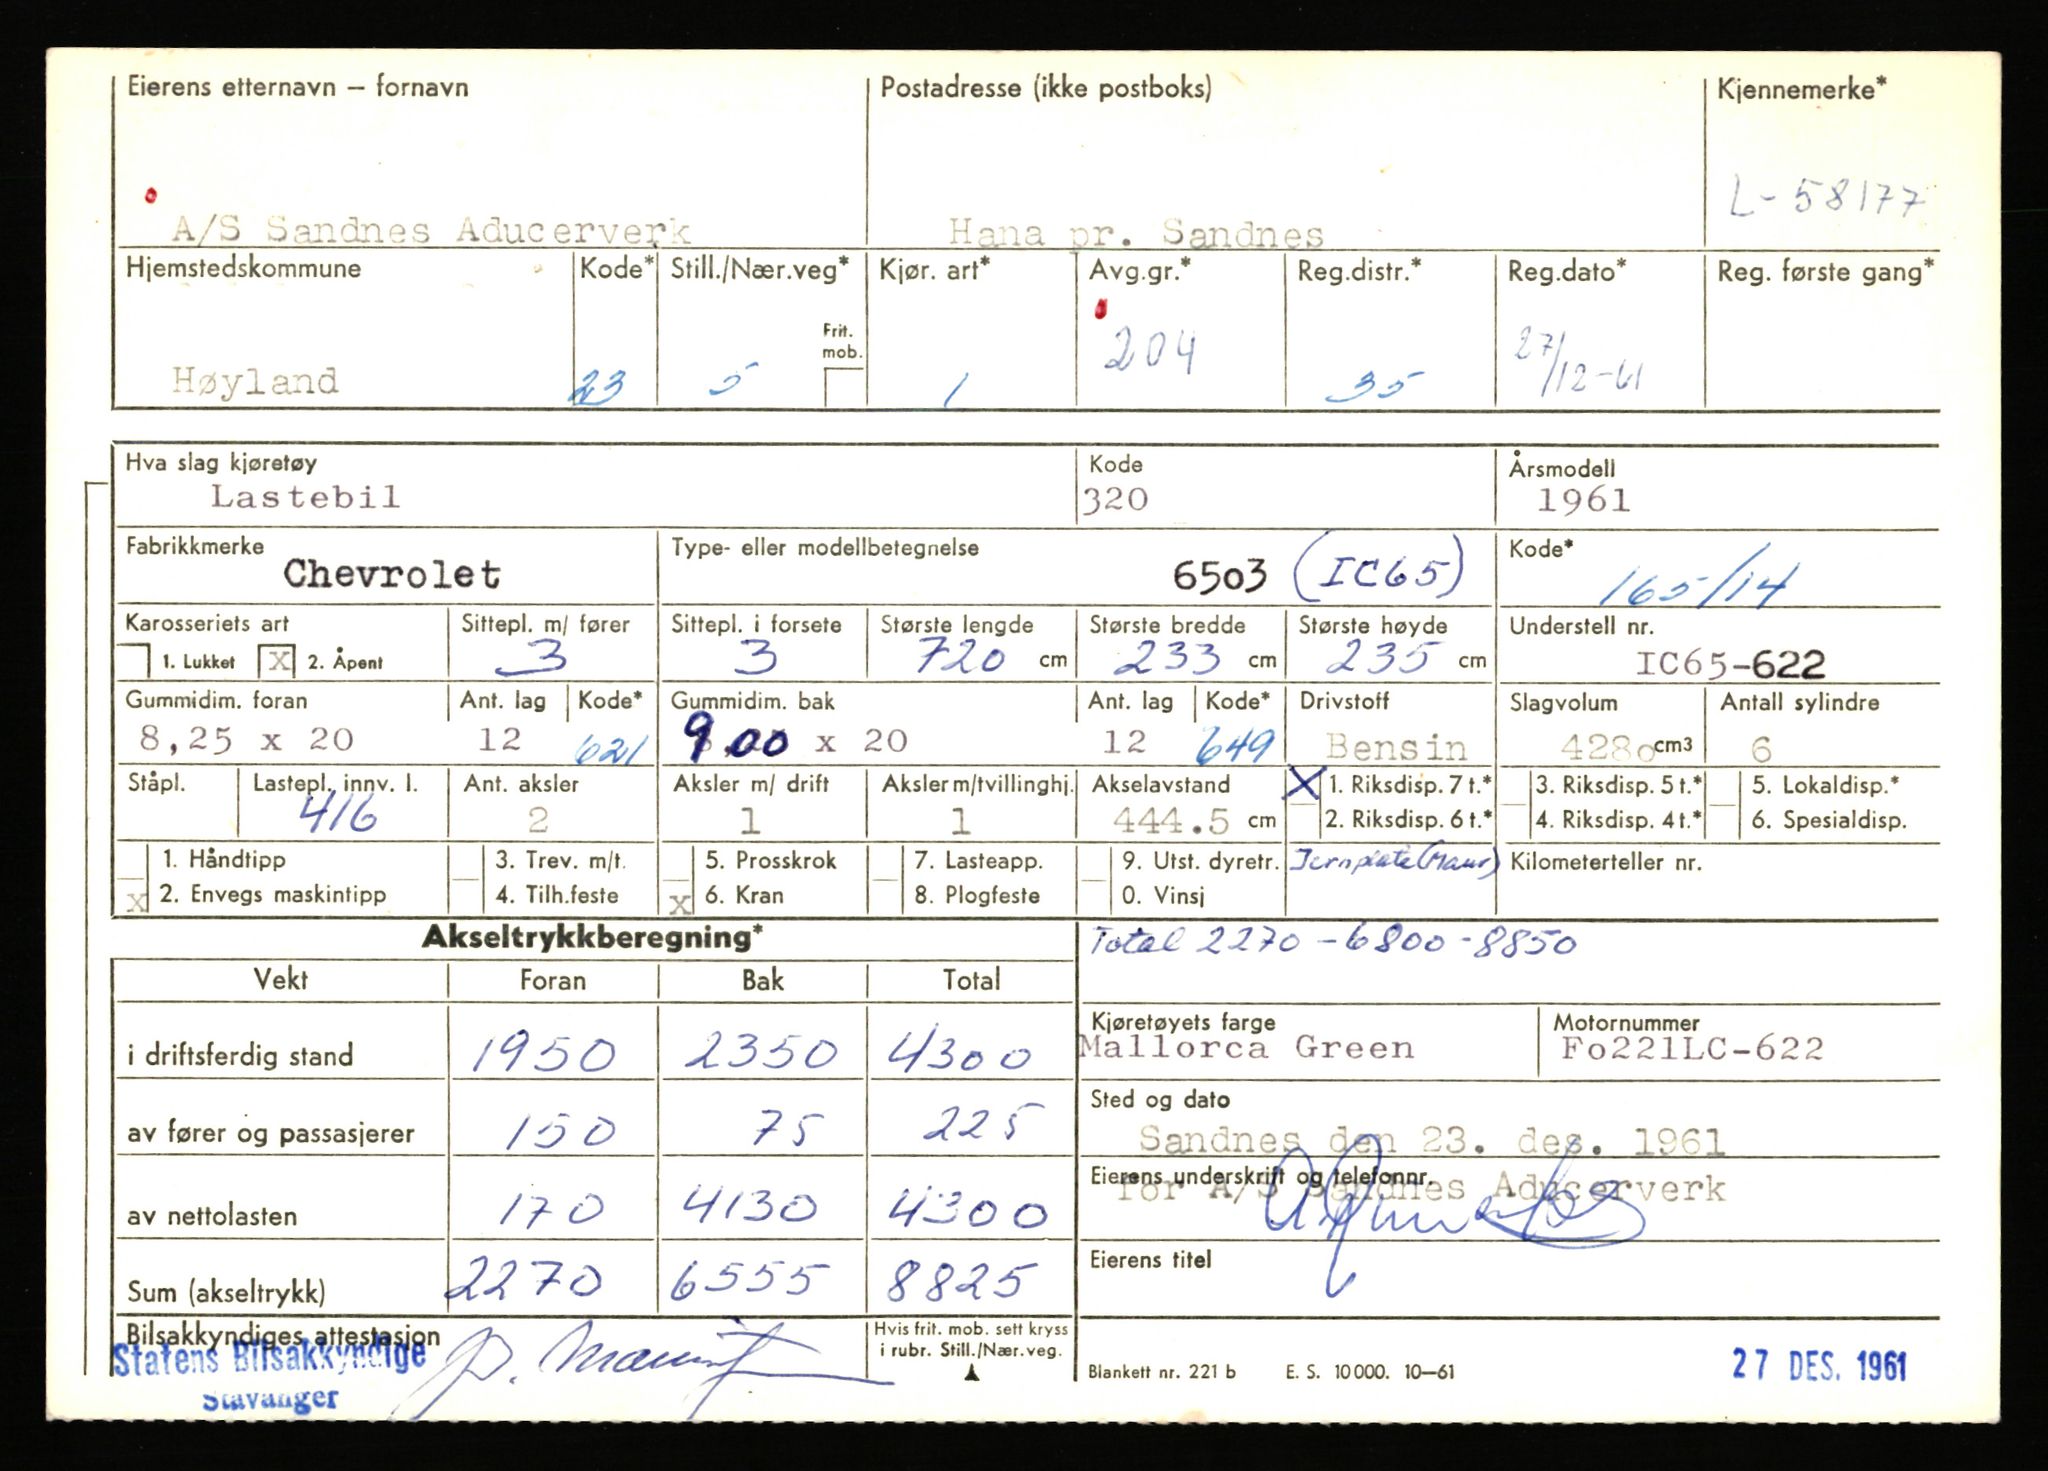 Eierens etternavn – fornavn Postadresse (ikke postboks) Kjennemerke*
L-58177
A/S Sandnes Aducerverk Hana pr. Sandnes
Hjemstedskommune Kode* Still./Nær.veg* Kjør. art* Avg.gr.* Reg.distr.* Reg.dato* Reg. første gang*
Frit. mob.
Høyland 23 5 1 204 35 27/12-61
Hva slag kjøretøy Kode Årsmodell
Lastebil 320 1961
Fabrikkmerke Type- eller modellbetegnelse Kode*
Chevrolet 6503 (IC65) 165/14
Karosseriets art Sittepl. m/ fører Sittepl. i forsete Største lengde Største bredde Største høyde Understell nr.
1. Lukket x 2. Åpent 3 3 720 cm 233 cm 235 cm IC65-622
Gummidim. foran Ant. lag Kode* Gummidim. bak Ant. lag Kode* Drivstoff Slagvolum Antall sylindre
8,25 x 20 12 621 9.00 x 20 12 649 Bensin 4280 cm3 6
Ståpl. Lastepl. innv. l. Ant. aksler Aksler m/ drift Aksler m/tvillinghj. Akselavstand X 1. Riksdisp. 7 t.* 3. Riksdisp. 5 t.* 5. Lokaldisp.*
416 2 1 1 444.5 cm 2. Riksdisp. 6 t.* 4. Riksdisp. 4 t.* 6. Spesialdisp.
1. Håndtipp 3. Trev. m/t. 5. Prosskrok 7. Lasteapp. 9. Utst. dyretr. Kilometerteller nr.
x 2. Envegs maskintipp 4. Tilh.feste x 6. Kran 8. Plogfeste 0. Vinsj
Akseltrykkberegning* Total 2270-6800-8850
Vekt Foran Bak Total
Kjøretøyets farge Motornummer
i driftsferdig stand 1950 2350 4300 Mallorca Green Fo221LC-622
Sted og dato
av fører og passasjerer 150 75 225 Sandnes den 23. des. 1961
Eierens underskrift og telefonnr.
for A/S Sandnes Aducerverk
av nettolasten 170 4130 4300
Eierens titel
Sum (akseltrykk) 2270 6555 8825
Bilsakkyndiges attestasjon Hvis frit. mob. sett kryss
i rubr. Still./Nær.veg.
Statens Bilsakkyndige
Stavanger
Blankett nr. 221 b E. S. 10 000. 10–61 27 DES. 1961